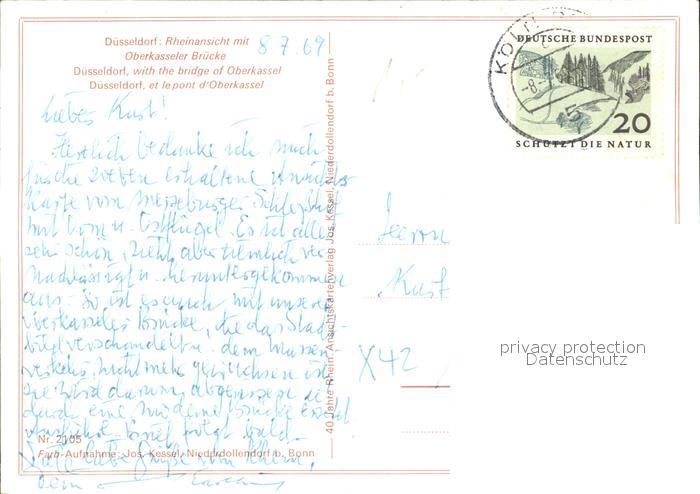 Düsseldorf: Rheinansicht mit
Oberkasseler Brücke
Düsseldorf, with the bridge of Oberkassel
Düsseldorf, et le pont d'Oberkassel
8.7.69
KÖLN
-8.-
5
DEUTSCHE BUNDESPOST
20
SCHÜTZT DIE NATUR
Liebes Kurt!
Herzlich bedanke ich mich
für die soeben erhaltene
Karte vom Merseburger Schloßhof
mit Dom u. Ostflügel. Es ist alles
sehr schön, sieht aber ziemlich ver
nachlässigt u. heruntergekommen
aus. So ist es auch mit unserer
Oberkasseler Brücke, die das Stadt-
bild verschandelt u. dem Massen-
verkehr nicht mehr gewachsen ist.
Sie wird darum abgerissen u.
durch eine moderne Brücke ersetzt
Brief folgt bald.
Viele liebe Grüße von
Dein
Herrn
Kurt
X42
40 Jahre Rhein. Ansichtskartenverlag Jos. Kessel, Niederdollendorf b. Bonn
Nr. 2105
Farb-Aufnahme: Jos. Kessel, Niederdollendorf b. Bonn
privacy protection
Datenschutz